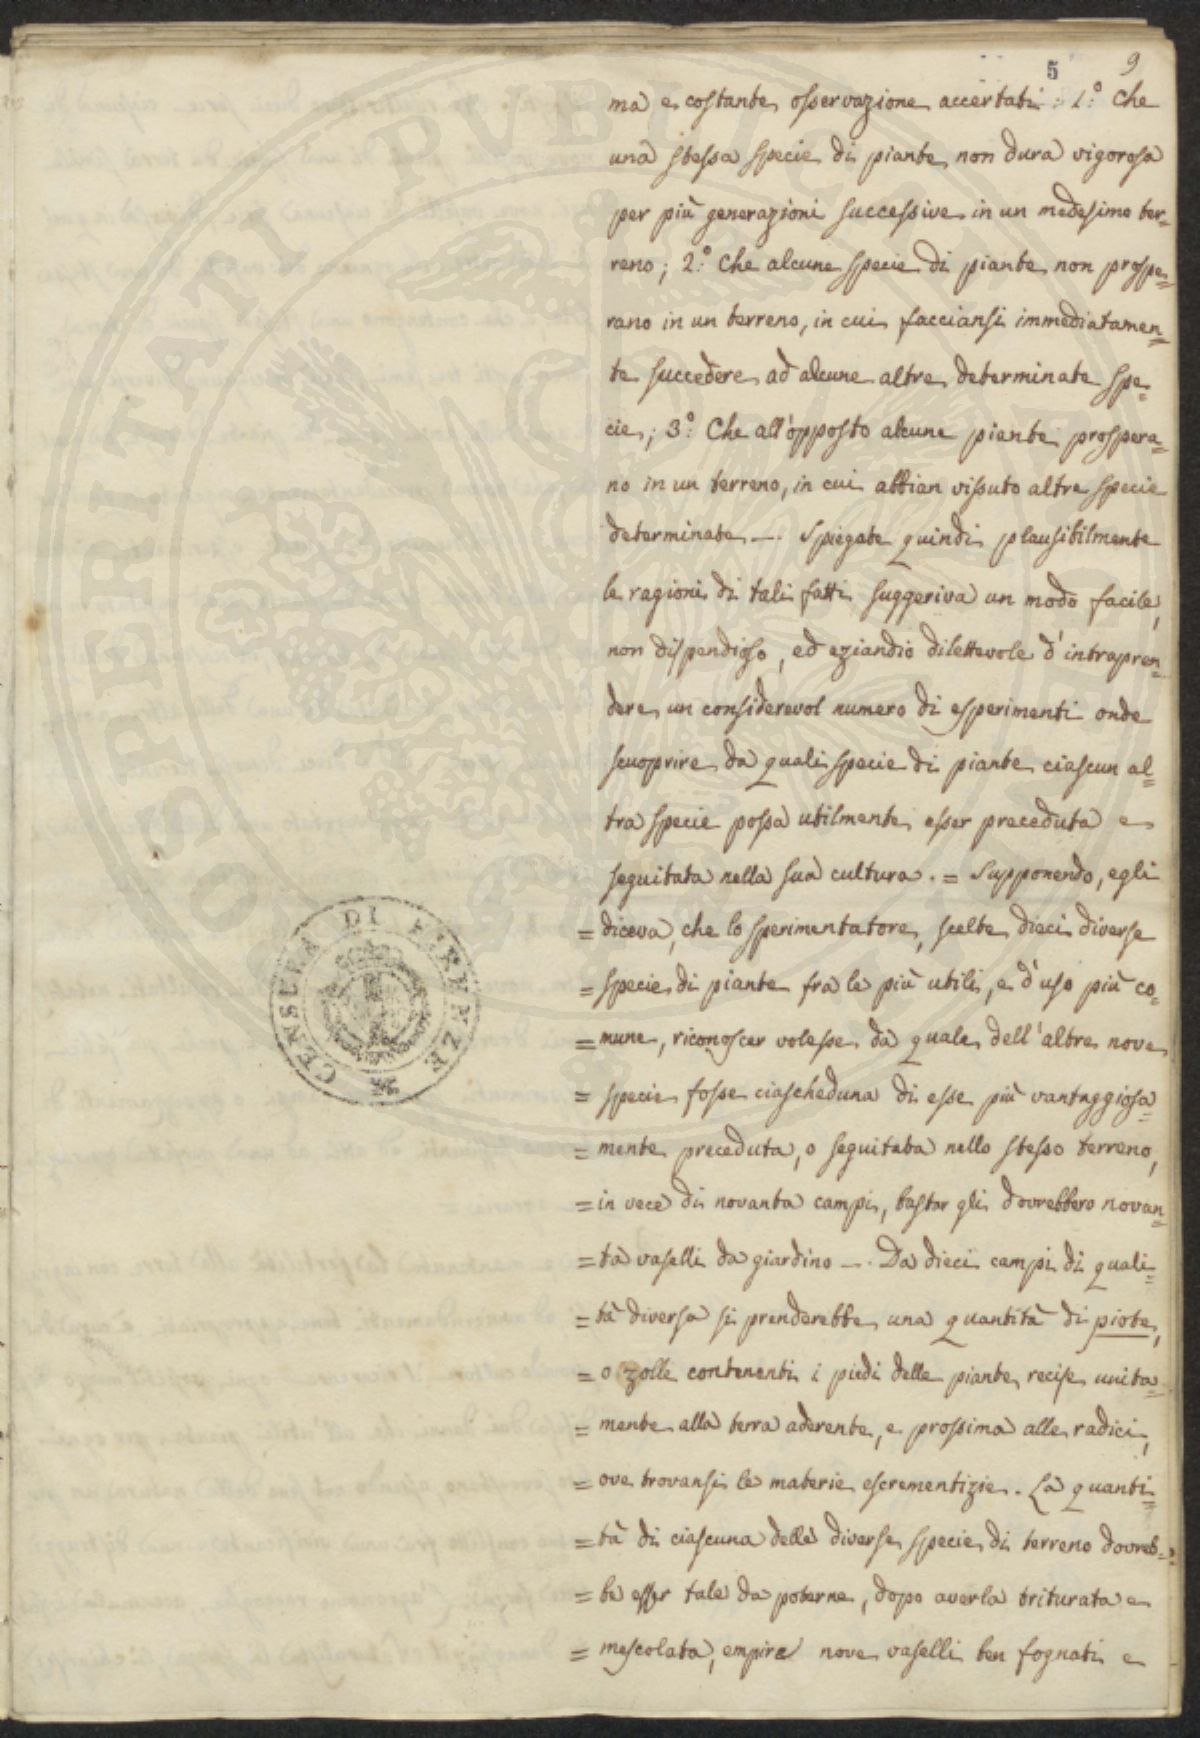 5 9
ma e costante osservazione accertati: 1.° Che
una stessa specie di piante non dura vigorosa
per più generazioni successive in un medesimo ter=
reno; 2.° Che alcune specie di piante non prospe=
rano in un terreno, in cui facciansi immediatamen=
te succedere ad alcune altre determinate spe=
cie; 3.° Che all'opposto alcune piante prospera=
no in un terreno, in cui abbian vissuto altre specie
determinate —. Spiegate quindi plausibilmente
le ragioni di tali fatti suggeriva un modo facile,
non dispendioso, ed eziandio dilettevole d'intrapren=
dere un considerevol numero di esperimenti onde
scuoprire da quali specie di piante ciascun al=
tra specie possa utilmente esser preceduta e
seguitata nella sua cultura. = Supponendo, egli
= diceva, che lo sperimentatore, scelte dieci diverse
= specie di piante fra le più utili, e d'uso più co=
= mune, riconoscer volesse da quale dell'altre nove
= specie fosse ciascheduna di esse più vantaggiosa=
= mente preceduta, o seguitata nello stesso terreno,
= in vece di novanta campi, bastar gli dovrebbero novan=
= ta vaselli da giardino —. Da dieci campi di quali=
= tà diversa si prenderebbe una quantità di piote,
= o zolle contenenti i piedi delle piante recise unita=
= mente alla terra aderente, e prossima alle radici,
= ove trovansi le materie escrementizie. La quanti=
= tà di ciascuna delle diverse specie di terreno dovreb=
= be esser tale da poterne, dopo averla triturata e
= mescolata, empire nove vaselli ben fognati e
CENSURA DI FIRENZE
PROSPERITATI PUBLICAE